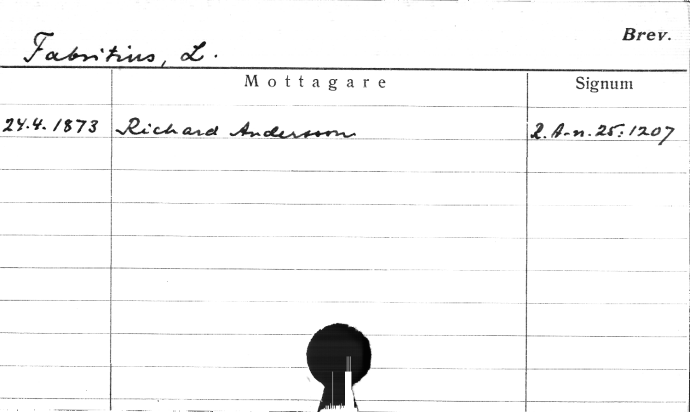 Brev.
Fabritius, L.
Mottagare Signum
24.4.1873 Richard Andersson R.A-n.25:1207